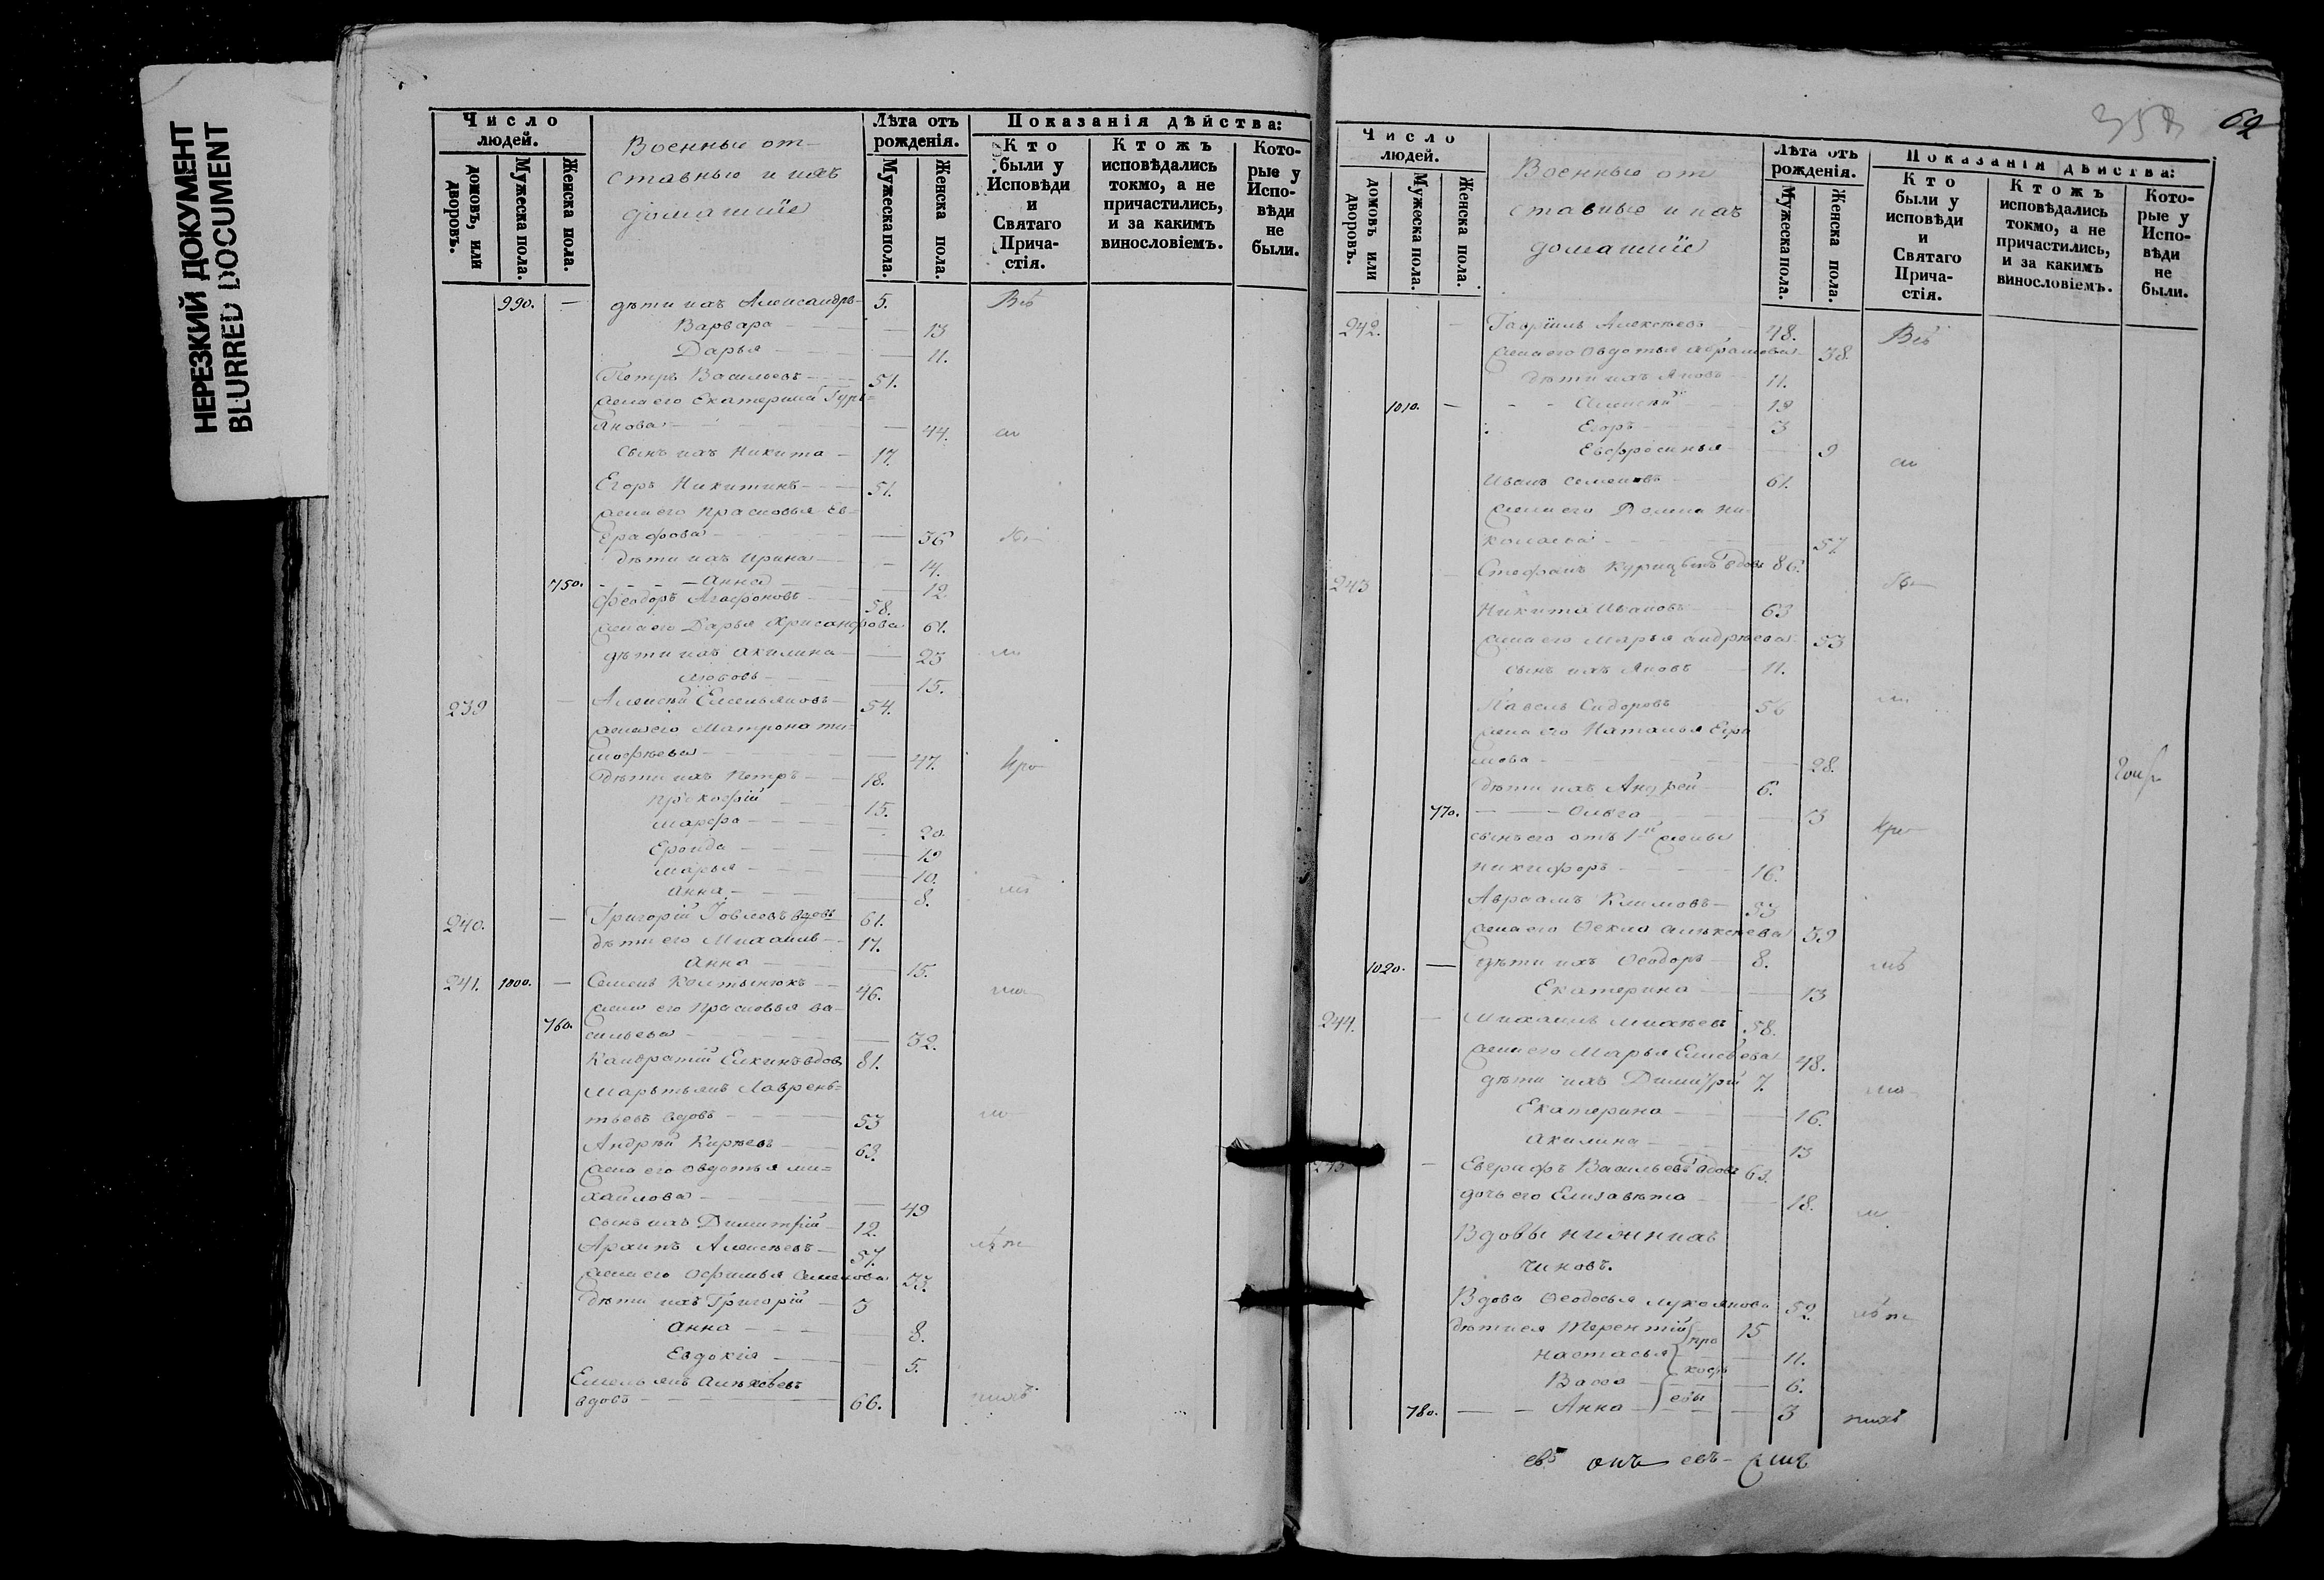 НЕРЕЗКИЙ ДОКУМЕНТ
BLURRED DOCUMENT
Число людей.
домовъ, или дворовъ.
Мужеска пола.
Женска пола.
Военные от-
ставные и ихъ
домашніе
Лѣта отъ рожденія.
Мужеска пола.
Женска пола.
Показанія дѣйства:
Кто были у Исповѣди и Святаго Прича-стія.
Ктожъ исповѣдались токмо, а не причастились, и за какимъ винословіемъ.
Кото-рые у Испо-вѣди не были.
990. — дѣти ихъ Александръ 5. Всѣ
Варвара — 13
Дарья — 11.
Петръ Васильевъ — 51.
жена его Екатерина Гурь=
янова — 44.
сынъ ихъ Никита — 17.
Егоръ Никитинъ — 51.
жена его Прасковья Ев=
графова — 36
дѣти ихъ Ирина — 14.
750. Анна — 12.
Феодоръ Агафоновъ — 58.
жена его Дарья Хрисанфова 61.
дѣти ихъ Акилина — 23
Любовь — 15.
239 — Алексѣй Емельяновъ — 54.
жена его Матрона Ти=
мофѣева — 47.
дѣти ихъ Петръ — 18.
Прокофій 15.
Марфа — 20.
Ероида — 19
Марья — 10.
Анна — 8.
240. — Григорій Іовлевъ вдовъ 61.
дѣти его Михаилъ — 17.
Анна — 15.
241. 1000. — Семенъ 46.
жена его Прасковья Ва-
760. сильева — 32.
Кондратій Елкинъ вдовъ 81.
Мартьянъ Лаврень=
тьевъ вдовъ — 53
Андрѣй Кирѣевъ — 63.
жена его Овдотья Ми=
хайлова — 49
сынъ ихъ Димитрій — 12.
Архипъ Алексѣевъ — 57.
жена его Офимья Семенова 33.
дѣти ихъ Григорій — 3
Анна — 8.
Евдокія — 5.
Емельянъ Алѣксѣевъ
вдовъ — 66.
62
Число людей.
домовъ или дворовъ.
Мужеска пола.
Женска пола.
Военные от
ставные и ихъ
домашніе
Лѣта отъ рожденія.
Мужеска пола.
Женска пола.
Показанія дѣйства:
Кто были у исповѣди и Святаго Прича-стія.
Ктожъ исповѣдались токмо, а не причастились, и за какимъ винословіемъ.
Кото-рые у Испо-вѣди не были.
242. — Гавріилъ Алексѣевъ 48. Всѣ
жена его Овдотья Абрамова 38.
дѣти ихъ Яковъ 11.
1010. — Алексѣй 19
Егоръ 3
Евфросинья — 9
Иванъ Семеновъ 61.
жена его Домна Ни=
колаева — 57
243 Стефанъ Курицынъ вдовъ 86.
Никита Ивановъ 63
жена его Марья Андрѣева 53
сынъ ихъ Яковъ 11.
Павелъ Сидоровъ 56
жена его Наталья Ефи
мова — 28.
дѣти ихъ Андрей 6.
770. — Ольга 3
сынъ его отъ 1й жены
Никифоръ — 16.
Авраамъ Климовъ — 53
жена его Ѳекла Алѣксѣева 39
1020. — дѣти ихъ Ѳеодоръ 8.
Екатерина — 13
244. — Михаилъ Михѣевъ 58.
жена его Марья Елисѣева 48.
дѣти ихъ Димитрій 7.
Екатерина — 16.
Акилина — 13
245 — Евграфъ Васильевъ вдовъ 63.
дочь его Елизавѣта — 18.
Вдовы нижнихъ
чиновъ.
Вдова Ѳеодосья Лукоянова 52.
дѣти ея Терентій 15
Настасья — 11.
Васса — 6.
Про
кофь
евы
780. — Анна — 3